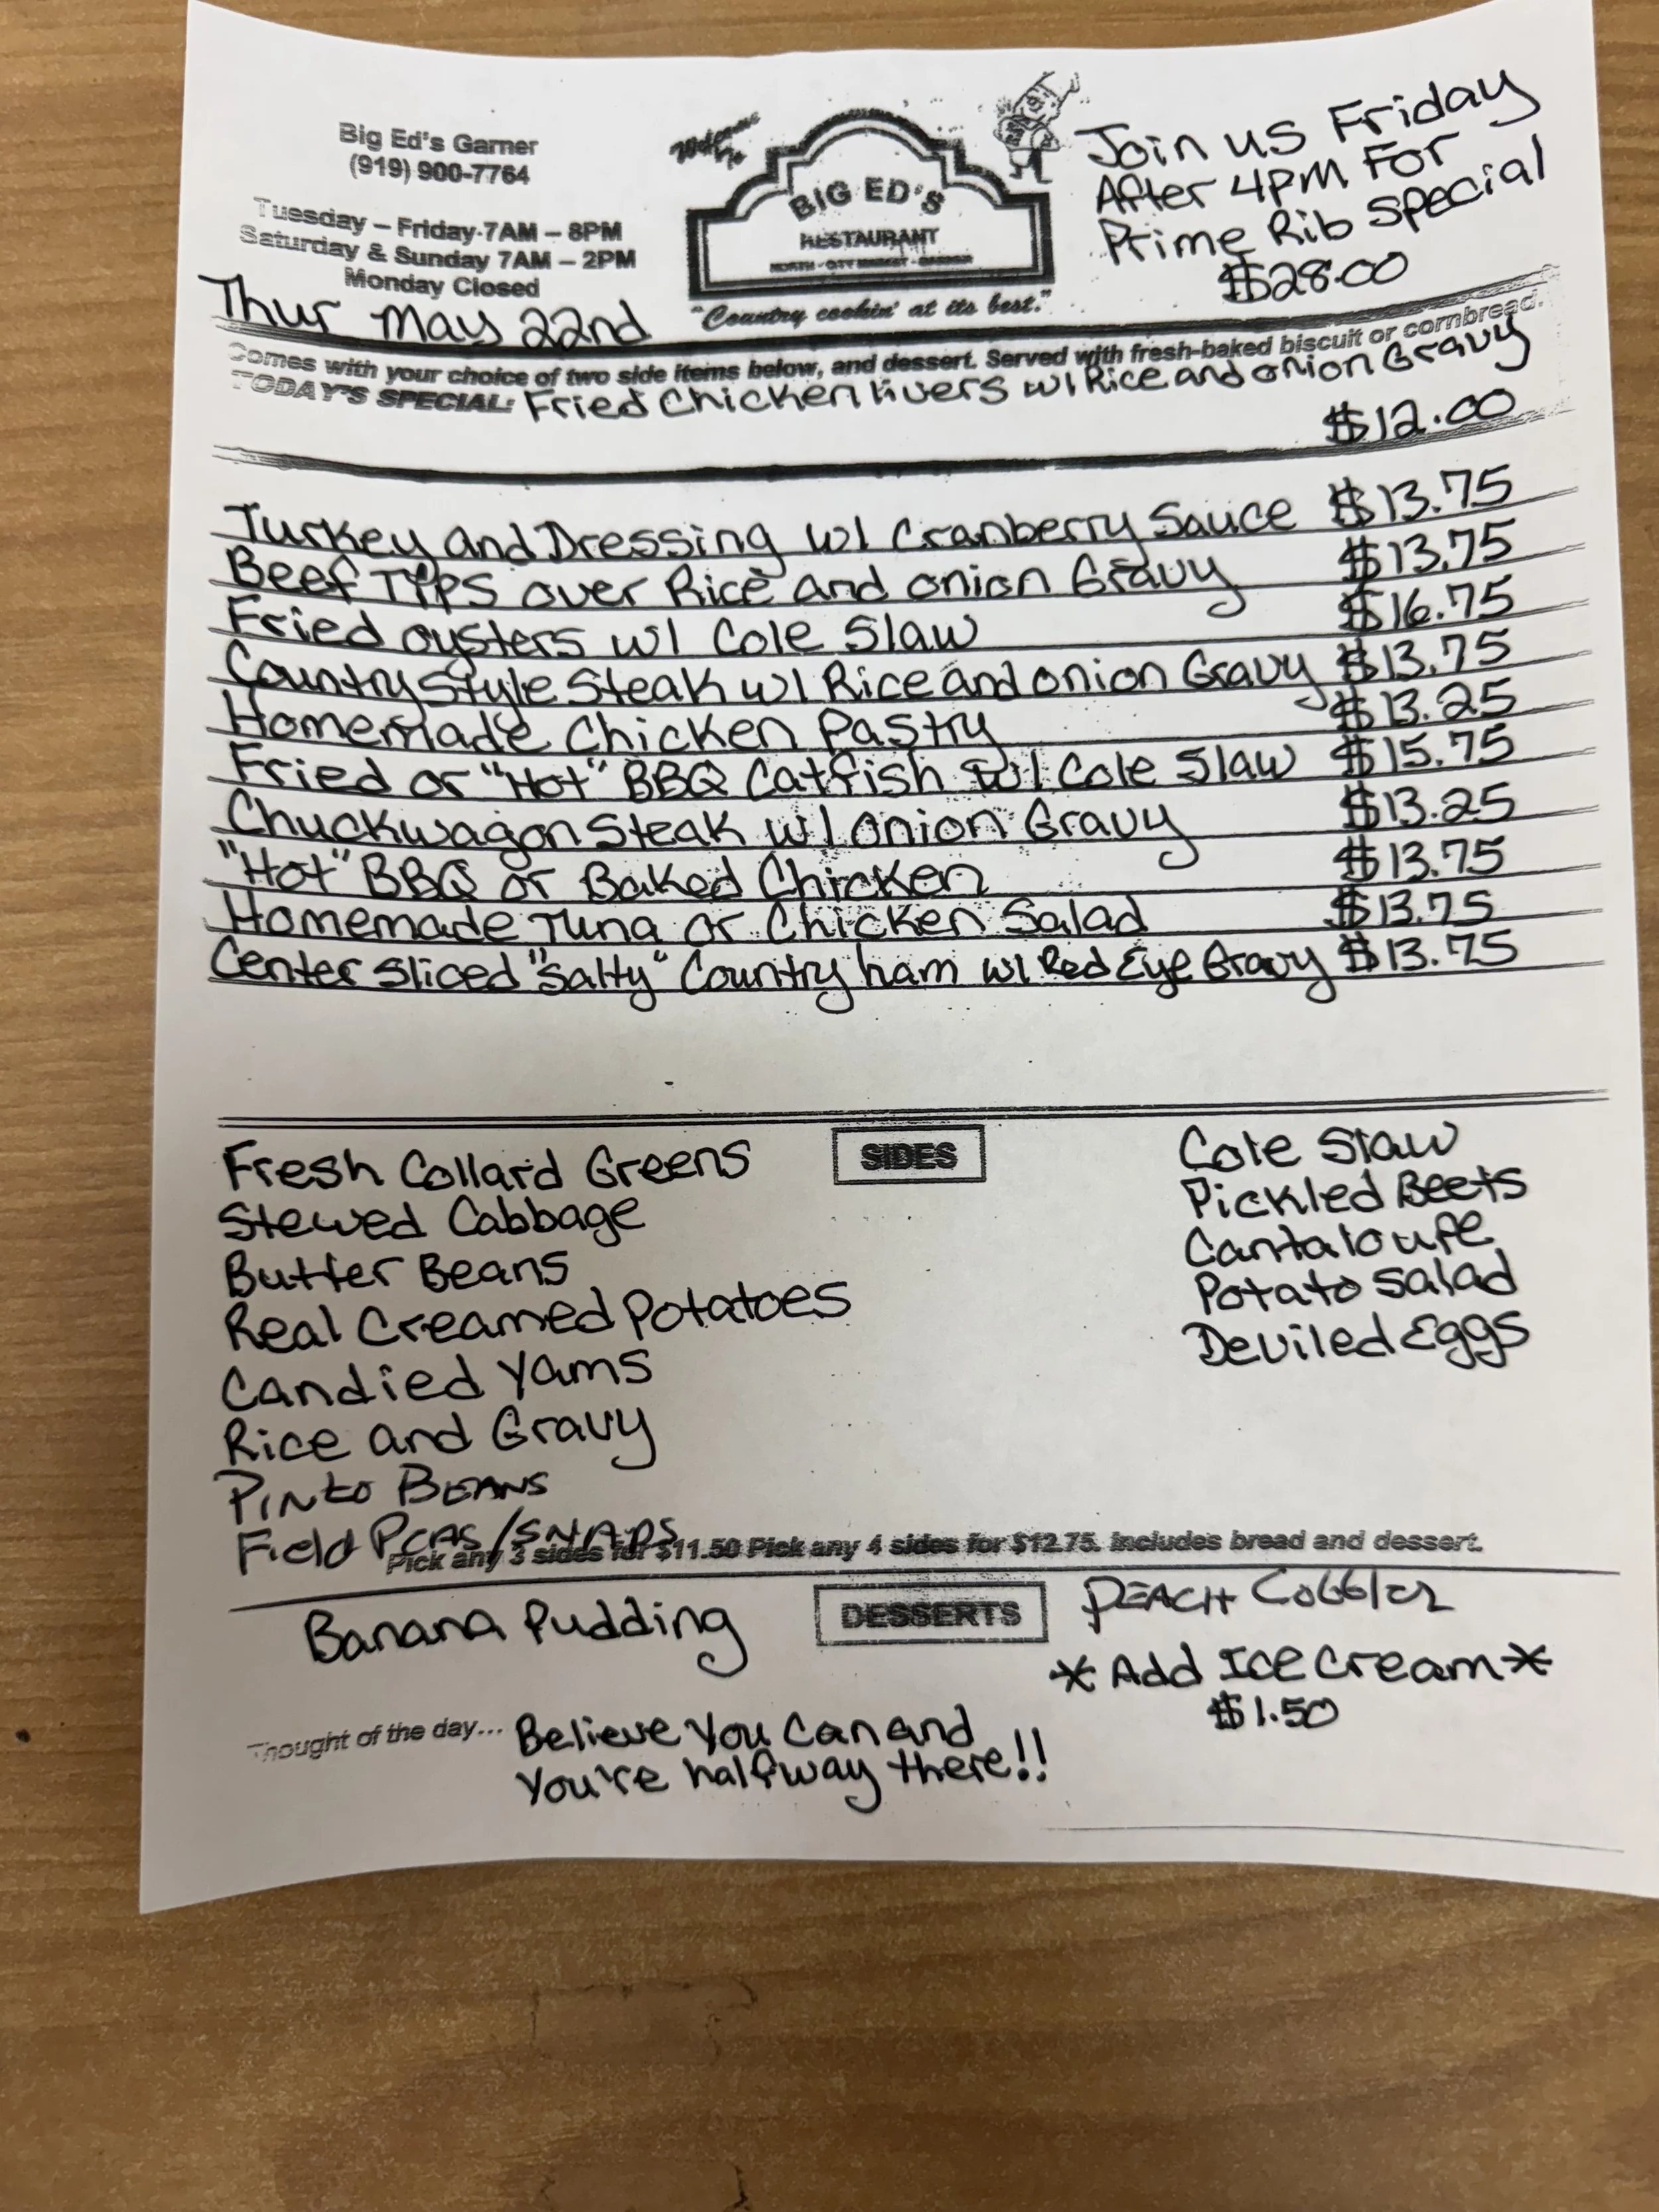 Big Ed's Garner
(919) 900-7764
Tuesday – Friday 7AM – 8PM
Saturday & Sunday 7AM – 2PM
Monday Closed
Thur May 22nd
Welcome to
BIG ED'S
RESTAURANT
NORTH - CITY MARKET - GARNER
"Country cookin' at its best."
Join us Friday
After 4PM For
Prime Rib Special
$28.00
Comes with your choice of two side items below, and dessert. Served with fresh-baked biscuit or cornbread.
TODAY'S SPECIAL: Fried Chicken livers w/ Rice and onion Gravy
$12.00
Turkey and Dressing w/ Cranberry Sauce $13.75
Beef Tips over Rice and onion Gravy $13.75
Fried oysters w/ Cole Slaw $16.75
Country Style Steak w/ Rice and onion Gravy $13.75
Homemade Chicken Pastry $13.25
Fried or "Hot" BBQ Catfish w/ Cole Slaw $15.75
Chuckwagon Steak w/ onion Gravy $13.25
"Hot" BBQ or Baked Chicken $13.75
Homemade Tuna or Chicken Salad $13.75
Center Sliced "Salty" Country ham w/ Red Eye Gravy $13.75
SIDES
Fresh Collard Greens
Stewed Cabbage
Butter Beans
Real Creamed Potatoes
Candied Yams
Rice and Gravy
Pinto BEANS
Field Peas/SNAPS
Cole Slaw
Pickled Beets
Cantaloupe
Potato Salad
Deviled Eggs
Pick any 3 sides for $11.50 Pick any 4 sides for $12.75. Includes bread and dessert.
DESSERTS
Banana Pudding
PEACH Cobbler
*Add Ice Cream*
$1.50
Thought of the day... Believe You Can and
You're halfway there!!